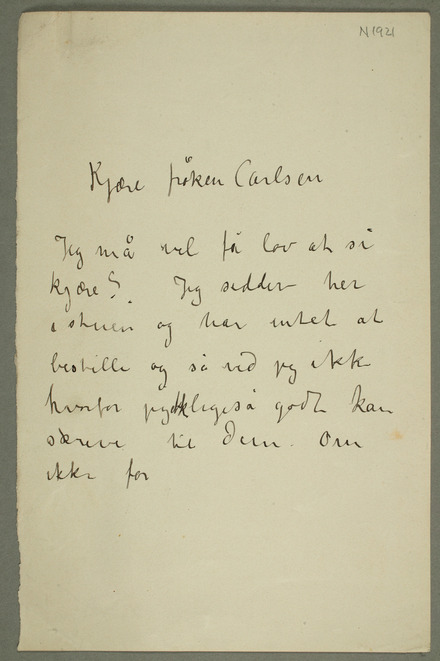 N 1921
Kjære frøken Carlsen
Jeg må vel få lov at si
kjære? Jeg sidder her
i stuen og har intet at
bestille og så ved jeg ikke
hvorfor jeg ikke ligeså godt kan
skrive til Dem. Om
ikke for